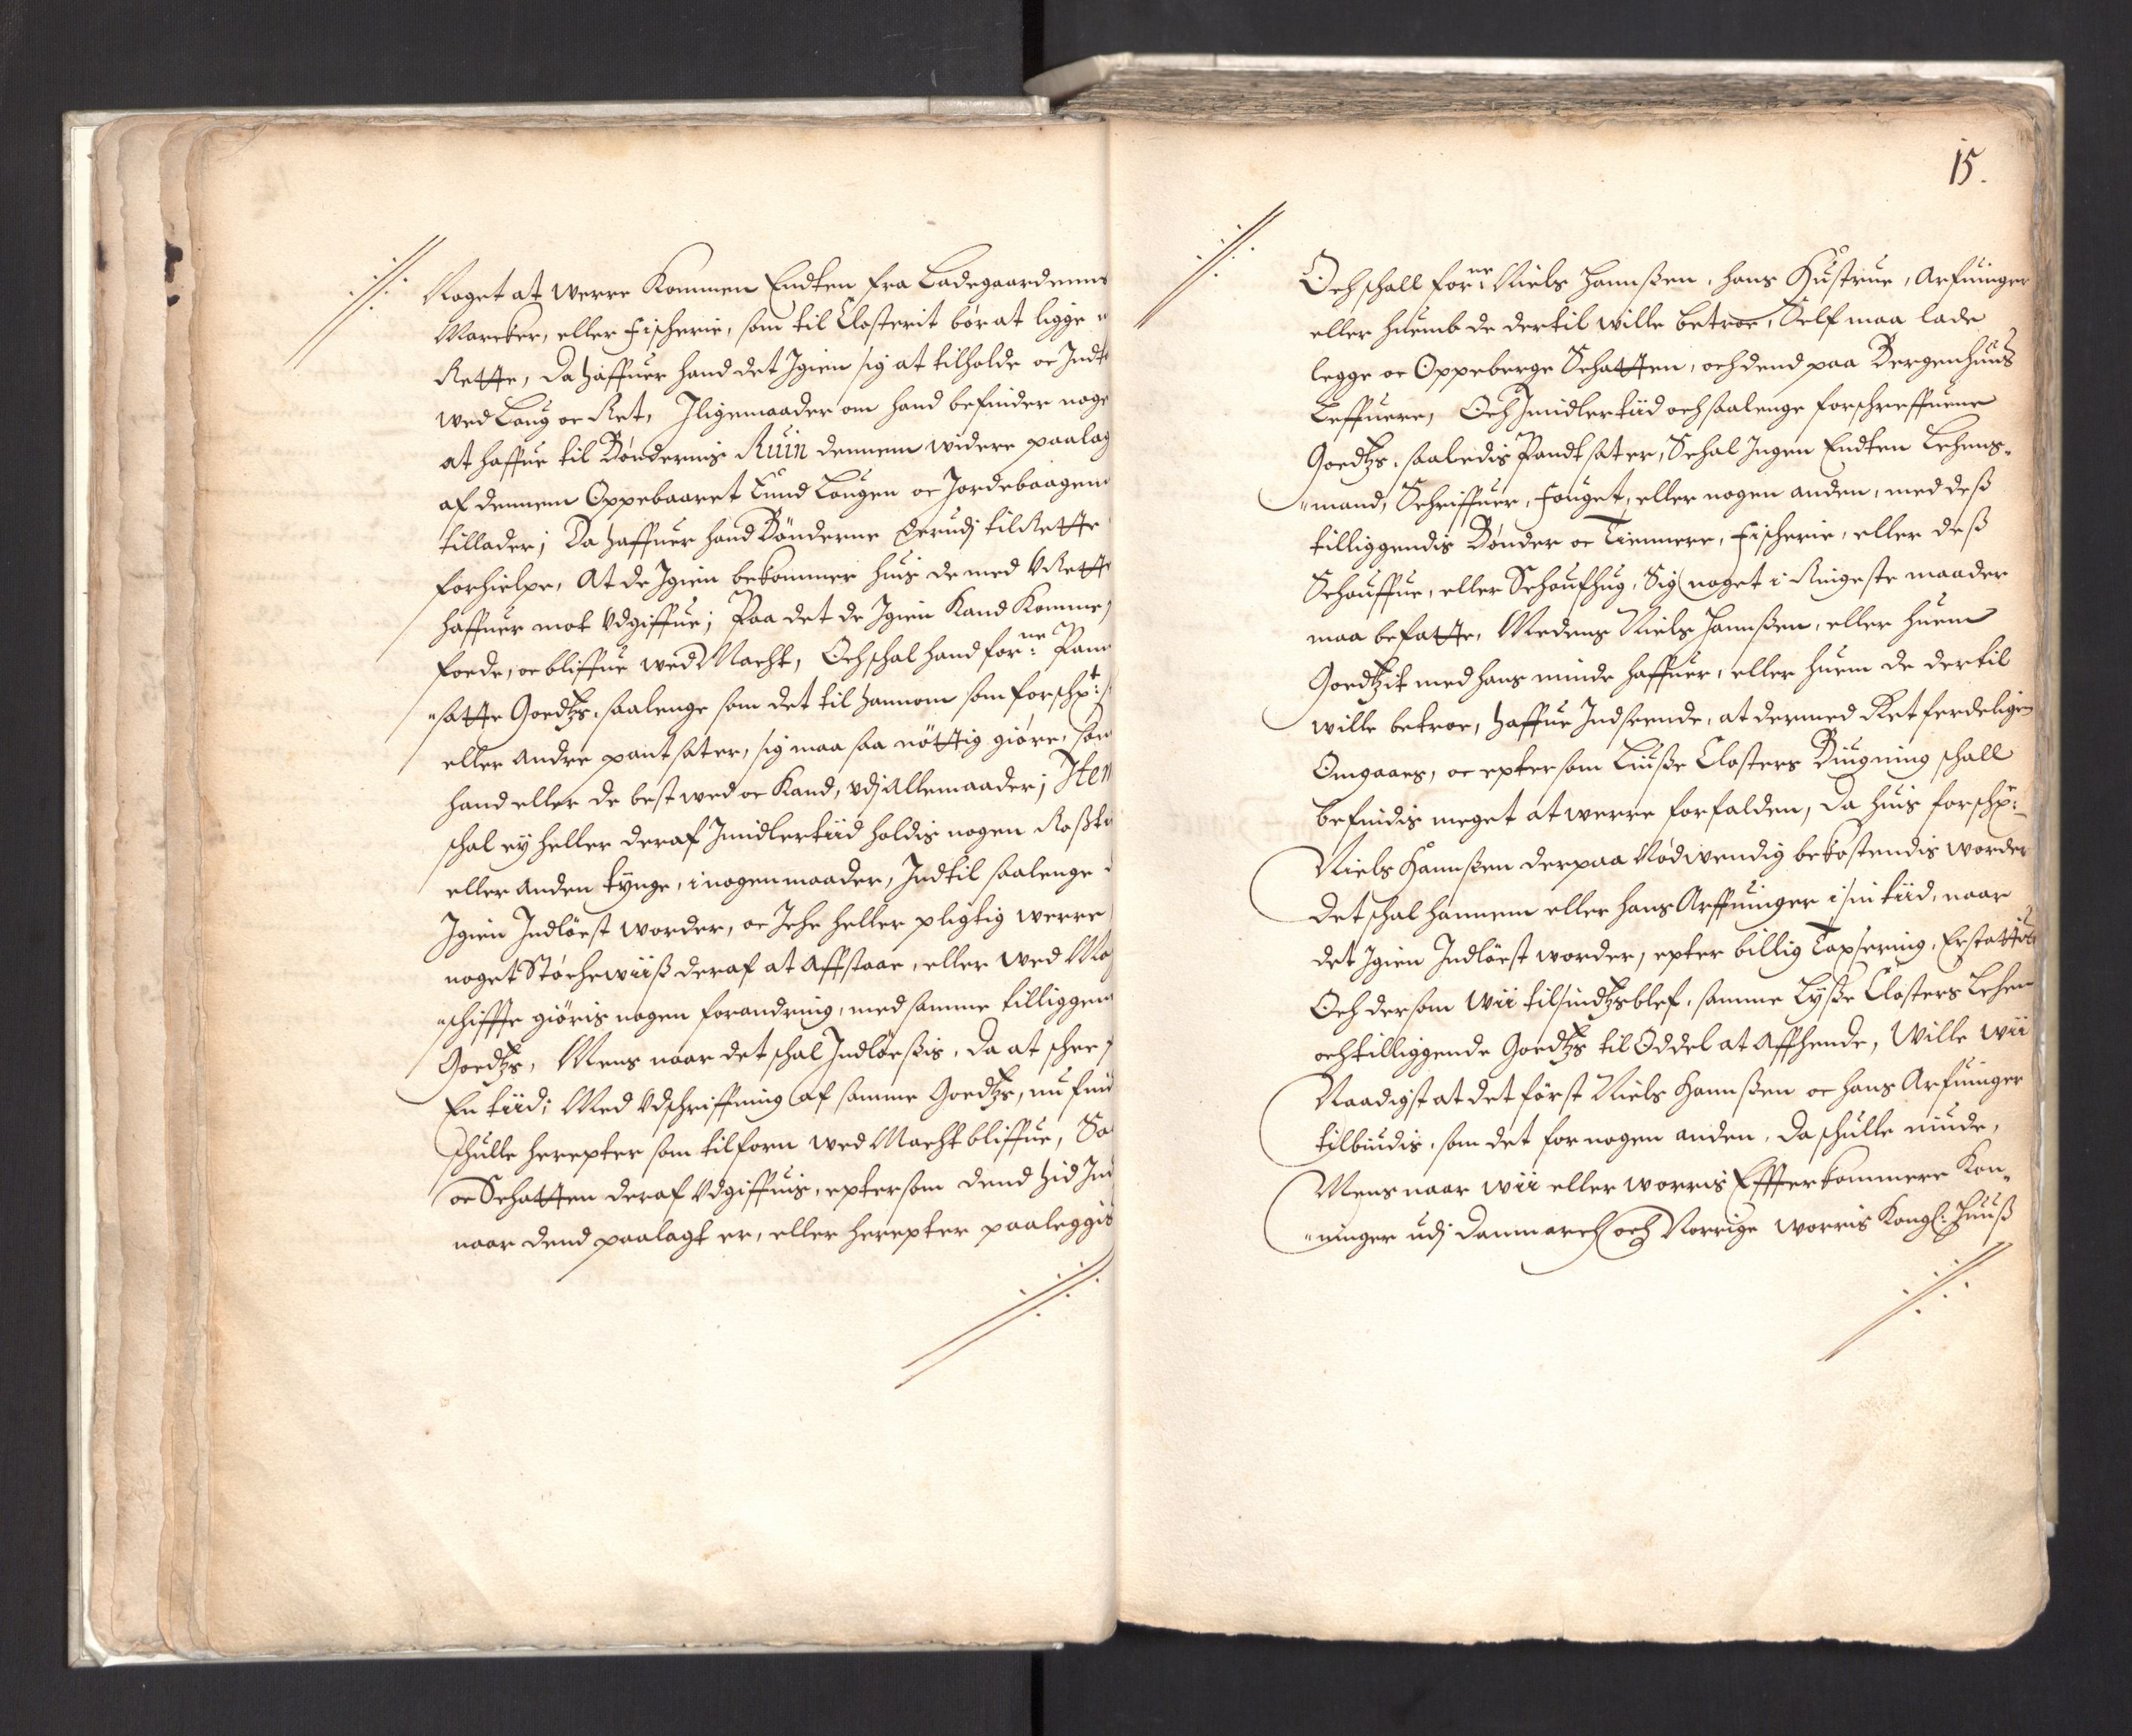 Noget at werre Kommen Endten fra Ladegaardenns
Marcker, eller Fischerie, som til Closterit bør at ligge
Rette, Da haffuer hand det Igien sig at tilholde oc Indt
wed Loug oc Ret, Iligemaader om hand befinder noge
at haffue til Bøndernis Ruin dennem widere paalag
af dennem Oppebaaret End Lougen oc Jordebaagenn
tillader; Da haffuer hand Bønderne derudj til Rette
forhielpe, At de Igien bekommer huis de med VRette
haffuer mot Vdgiffue; Paa det de Igien Kand Komme
foede, oc bliffue wed Macht, Och schal hand forne: Pan
"satte Goedtzs, saalenge som det til hannom som forschpt:
eller Andre pantsat er, sig maa saa nøttig giøre, som
hand eller de best wed oc Kand, vdj Allemaader; Item
schal ej heller deraf Imidlertiid holdis nogen Roßti
eller Anden tynge, i nogenmaader, Indtil saalenge
Igien Indløest worder, oc Iche heller pligtig werre
noget Støchewiiß deraf at Affstaae, eller wed Ma
"schiffte giøris nogen forandring, med samme tilliggen
Goedtzs, Mens naar det schal Indløeßis, Da at schee
En tiid; Med Vdschriffning af samme Goedtzs, nu fin
schulle herepter som tilforn wed Macht bliffue, Sa
oc Schatten deraf Vdgiffuis, eptersom dend hid Ind
naar dend paalagt er, eller herepter paaleggis
15.
Och schall forne: Niels Hannßen, hans Hustrue, Arfuinger
eller huemb de dertil wille betroe, Self maa lade
legge oc Oppeberge Schatten, och dend paa Bergenhuus
Leffuere, Och Imidlertiid och saalenge forschreffuene
Goedtzs, saaledis Pandtsat er, Schal Ingen Endten Lehens-
"mand, Schriffuer, Fouget, eller nogen anden, med deß
tilliggendis Bønder oc Tiennere, Fischerie, eller deß
Schouffue, eller Schoufhug, Sig noget i Ringeste maader
maa befatte, Medens Niels Hannßen, eller huem
Goedtzit med hans minde haffuer, eller huem de dertil
wille betroe, haffue Indseende, at dermed Retferdeligen
Omgaaes, oc eptersom Liuße Closters Biugning schall
befindis meget at werre forfalden, Da huis forschpne:
Niels Hannßen derpaa Nødwendig bekostendis worder
Det schal hannem eller hans Arffuinger i sin tiid, naar
det Igien Indløest worder, epter billig Taxsering, Erstattis
Och dersom wii tilsindtzs blef, samme Lyße Closters Lehen
och tilliggende Goedtzs til Oddel at Affhende, Wille wii
Naadigst at det først Niels Hannßen oc hans Arfuinger
tilbiudis, som det for nogen anden, Da schulle niude,
Mens naar wii eller worris Effterkommere Kon-
"ninger udj Danmarch och Norrige worris Kongl: Huuß